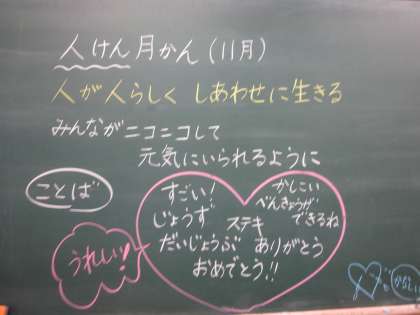 人けん月かん(11月)
人が人らしく しあわせに生きる
みんながニコニコして
元気にいられるように
ことば
すごい!
かしこい
べんきょうができるね
じょうず
ステキ
だいじょうぶ
ありがとう
おめでとう!!
うれしい!